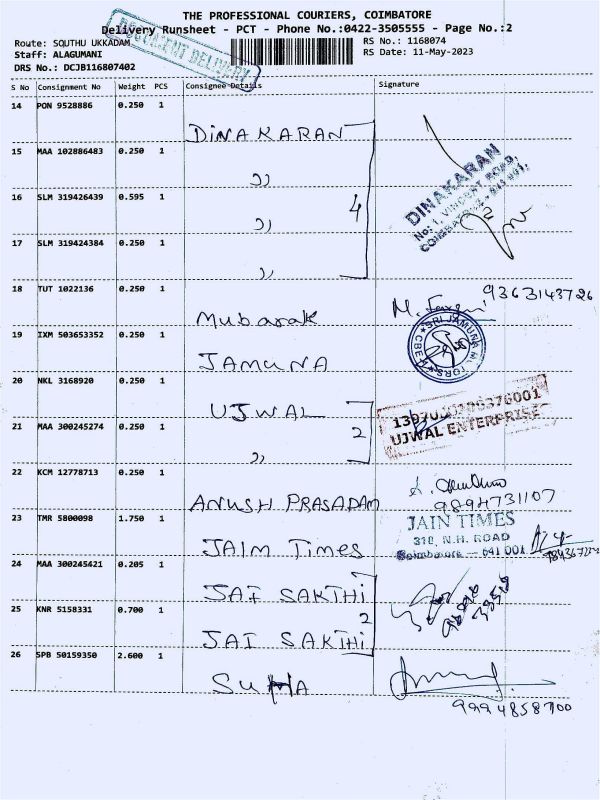 THE PROFESSIONAL COURIERS, COIMBATORE
Delivery Runsheet - PCT - Phone No.:0422-3505555 - Page No.:2
Route: SOUTHU UKKADAM
RS No.: 1168074
Staff: ALAGUMANI
RS Date: 11-May-2023
DRS No.: DCJB116807402
DELIVERY
S No Consignment No Weight PCS Consignee Details Signature
14 PON 9528886 0.250 1
DINAKARAN
15 MAA 102886483 0.250 1
DINAKARAN
No: 1, VINCENT ROAD,
16 SLM 319426439 0.595 1
4
17 SLM 319424384 0.250 1
18 TUT 1022136 0.250 1
9363143726
Mubarak
19 IXM 503653352 0.250 1
SRI JAMUNA
JAMUNA
20 NKL 3168920 0.250 1
UJWAL
2
UJWAL ENTERPRISE
21 MAA 300245274 0.250 1
22 KCM 12778713 0.250 1
ANUSH PRASADAM
9894731107
23 TMR 5800098 1.750 1
JAIN TIMES
318, N.H. ROAD
Coimbatore - 641 001
JAIM Times
24 MAA 300245421 0.205 1
JAI SAKTHI
2
25 KNR 5158331 0.700 1
JAI SAKTHI
26 SPB 50159350 2.600 1
SUMA
9994858700